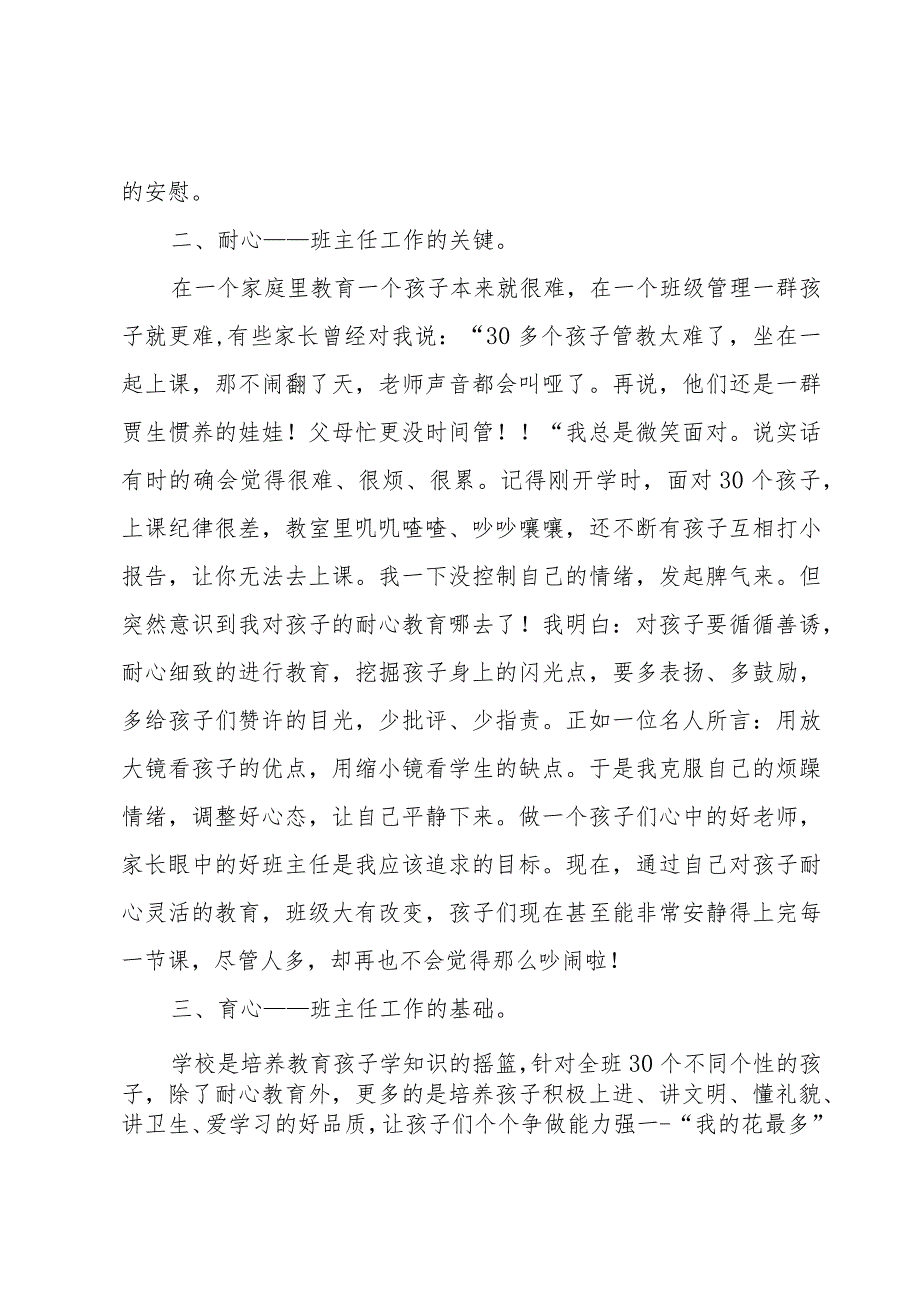 的安慰。
二、耐心——班主任工作的关键。
在一个家庭里教育一个孩子本来就很难，在一个班级管理一群孩
子就更难,有些家长曾经对我说：“30多个孩子管教太难了，坐在一
起上课，那不闹翻了天，老师声音都会叫哑了。再说，他们还是一群
贾生惯养的娃娃！父母忙更没时间管！！“我总是微笑面对。说实话
有时的确会觉得很难、很烦、很累。记得刚开学时，面对30个孩子，
上课纪律很差，教室里叽叽喳喳、吵吵嚷嚷，还不断有孩子互相打小
报告，让你无法去上课。我一下没控制自己的情绪，发起脾气来。但
突然意识到我对孩子的耐心教育哪去了！我明白：对孩子要循循善诱，
耐心细致的进行教育，挖掘孩子身上的闪光点，要多表扬、多鼓励，
多给孩子们赞许的目光，少批评、少指责。正如一位名人所言：用放
大镜看孩子的优点，用缩小镜看学生的缺点。于是我克服自己的烦躁
情绪，调整好心态，让自己平静下来。做一个孩子们心中的好老师，
家长眼中的好班主任是我应该追求的目标。现在，通过自己对孩子耐
心灵活的教育，班级大有改变，孩子们现在甚至能非常安静得上完每
一节课，尽管人多，却再也不会觉得那么吵闹啦！
三、育心——班主任工作的基础。
学校是培养教育孩子学知识的摇篮,针对全班30个不同个性的孩
子，除了耐心教育外，更多的是培养孩子积极上进、讲文明、懂礼貌、
讲卫生、爱学习的好品质,让孩子们个个争做能力强一-“我的花最多”